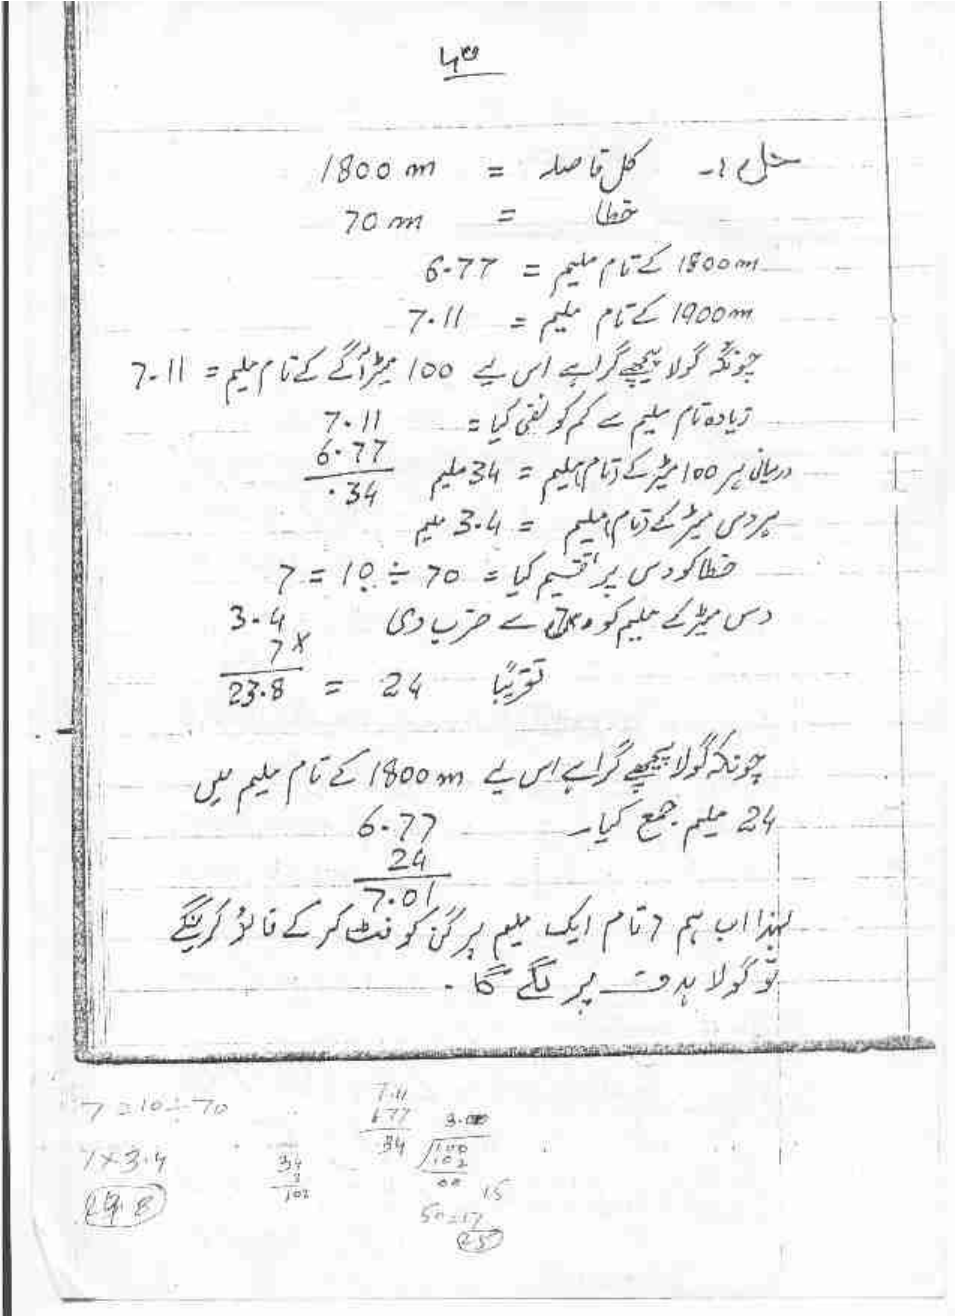 ۵۳
حل :۔ کل فاصلہ = 1800 m
خطا = 70 m
1800m کے تام ملیم = 6.77
1900m کے تام ملیم = 7.11
چونکہ گولا پیچھے گرا ہے اس لیے 100 میٹر آگے کے تام ملیم = 7.11
زیادہ تام ملیم سے کم کو نفی کیا = 7.11
6.77
درمیانی ہر 100 میٹر کے (تام) ملیم = 34 ملیم .34
ہر دس میٹر کے (تام) ملیم = 3.4 ملیم
خطا کو دس پر تقسیم کیا = 70 ÷ 10 = 7
دس میٹر کے ملیم کو سے ضرب دی 3.4
7 x
تقریباً 24 = 23.8
چونکہ گولا پیچھے گرا ہے اس لیے 1800m کے تام ملیم میں
24 ملیم جمع کیا۔ 6.77
24
7.01
لہذا اب ہم 7 تام ایک ملیم پر گن کو فٹ کر کے فائر کرینگے
تو گولا ہدف پر لگے گا ۔
7 = 10 ÷ 70
7.11
6.77
.34
7 x 3.4
34
3
102
100
102
00
15
50=17
25